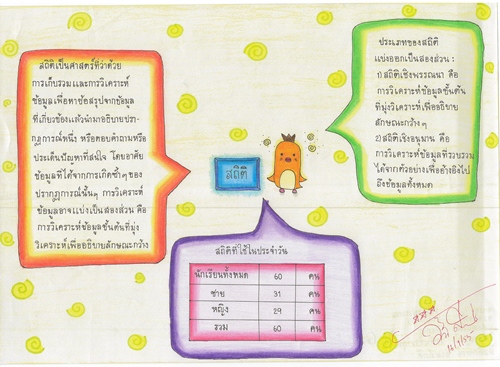 สถิติเป็นศาสตร์ที่ว่าด้วย
การเก็บรวมและการวิเคราะห์
ข้อมูลเพื่อหาข้อสรุปจากข้อมูล
ที่เกี่ยวข้องแล้วนำมาอธิบายปรา-
กฏการณ์หนึ่ง หรือตอบคำถามหรือ
ประเด็นปัญหาที่สนใจ โดยอาศัย
ข้อมูลที่ได้จากการเกิดซ้ำๆ ของ
ปรากฏการณ์นั้นๆ การวิเคราะห์
ข้อมูลอาจแบ่งเป็นสองส่วน คือ
การวิเคราะห์ข้อมูลขั้นต้นที่มุ่ง
วิเคราะห์เพื่ออธิบายลักษณะกว้าง
ประเภทของสถิติ
แบ่งออกเป็นสองส่วน :
1) สถิติเชิงพรรณนา คือ
การวิเคราะห์ข้อมูลขั้นต้น
ที่มุ่งวิเคราะห์เพื่ออธิบาย
ลักษณะกว้างๆ
2) สถิติเชิงอนุมาน คือ
การวิเคราะห์ข้อมูลที่รวบรวม
ได้จากตัวอย่างเพื่ออ้างอิงไป
ถึงข้อมูลทั้งหมด
สถิติ
สถิติที่ใช้ในประจำวัน
นักเรียนทั้งหมด 60 คน
ชาย 31 คน
หญิง 29 คน
รวม 60 คน